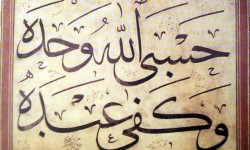 حَسْبِيَ اللّٰهُ وَحْدَهُ
وَكَفٰى عَبْدَهُ